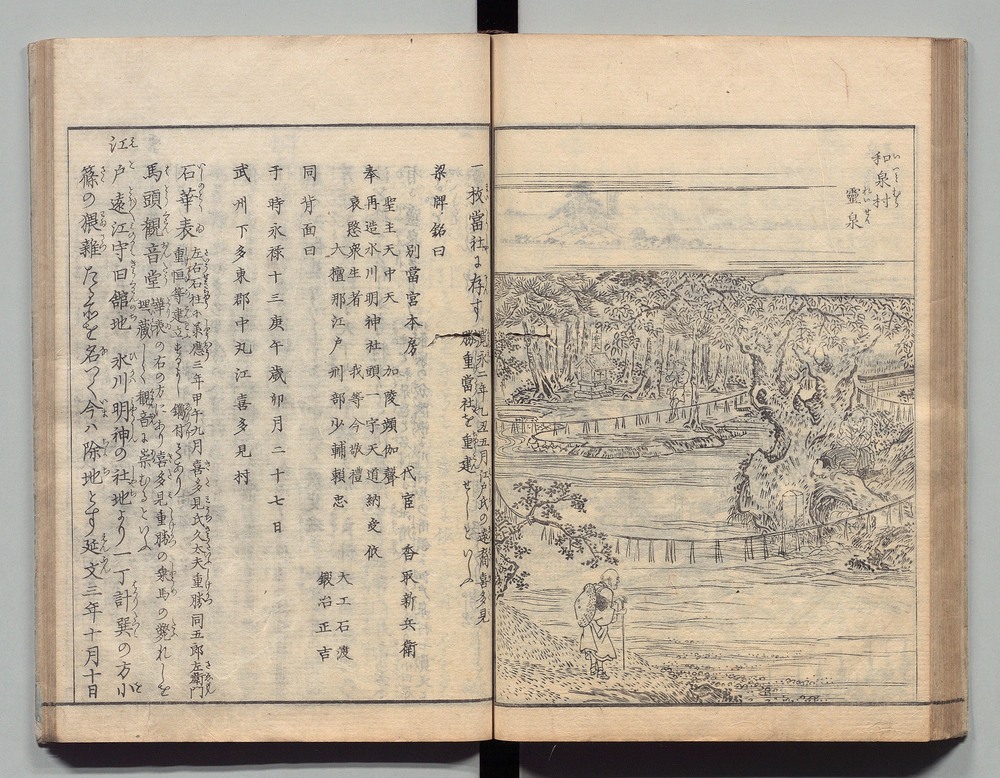 和泉村
霊泉
一枚當社に存す 寛永二年九五五月江戸氏の遠裔喜多見
勝重當社を重建せしといふ
梁牌銘曰
別當宮本房 代官 香取新兵衛
聖主天中天 加陵頻伽聲
奉再造氷川明神社頭一宇天道納受依
哀愍衆生者 我等今敬禮
大檀那江戸刑部少輔頼忠
大工石渡
鍛冶正吉
同背面曰
于時永禄十三庚午歳卯月二十七日
武州下多東郡中丸江喜多見村
石華表 左右石柱に承應三年甲午九月喜多見氏久大夫重勝同五郎左衛門
重恒等建立
馬頭観音堂 華表の右の方にあり喜多見重勝の乗馬の斃れしを
埋蔵しく観音に崇むるといふ
江戸遠江守旧舘地 氷川明神の社地より一丁計巽の方小
篠の猥雜たる名つく今ハ除地とす延文三年十月十日